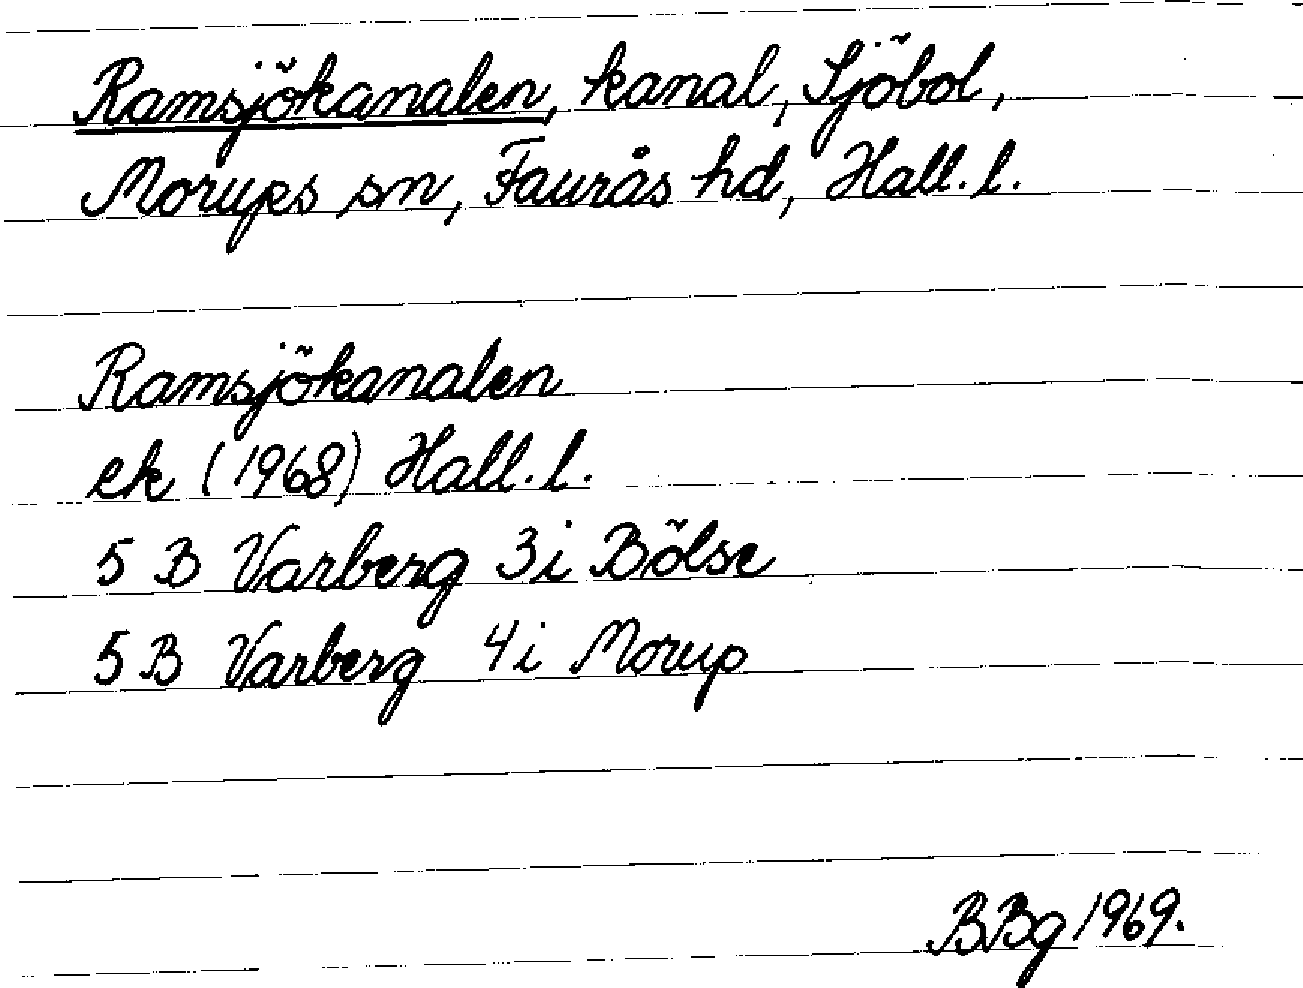 Ramsjökanalen, kanal, Sjöbol,
Morups sn, Faurås hd, Hall. l.
Ramsjökanalen
ek (1968) Hall. l.
5 B Varberg 3i Bölse
5 B Varberg 4i Morup
BBg 1969.